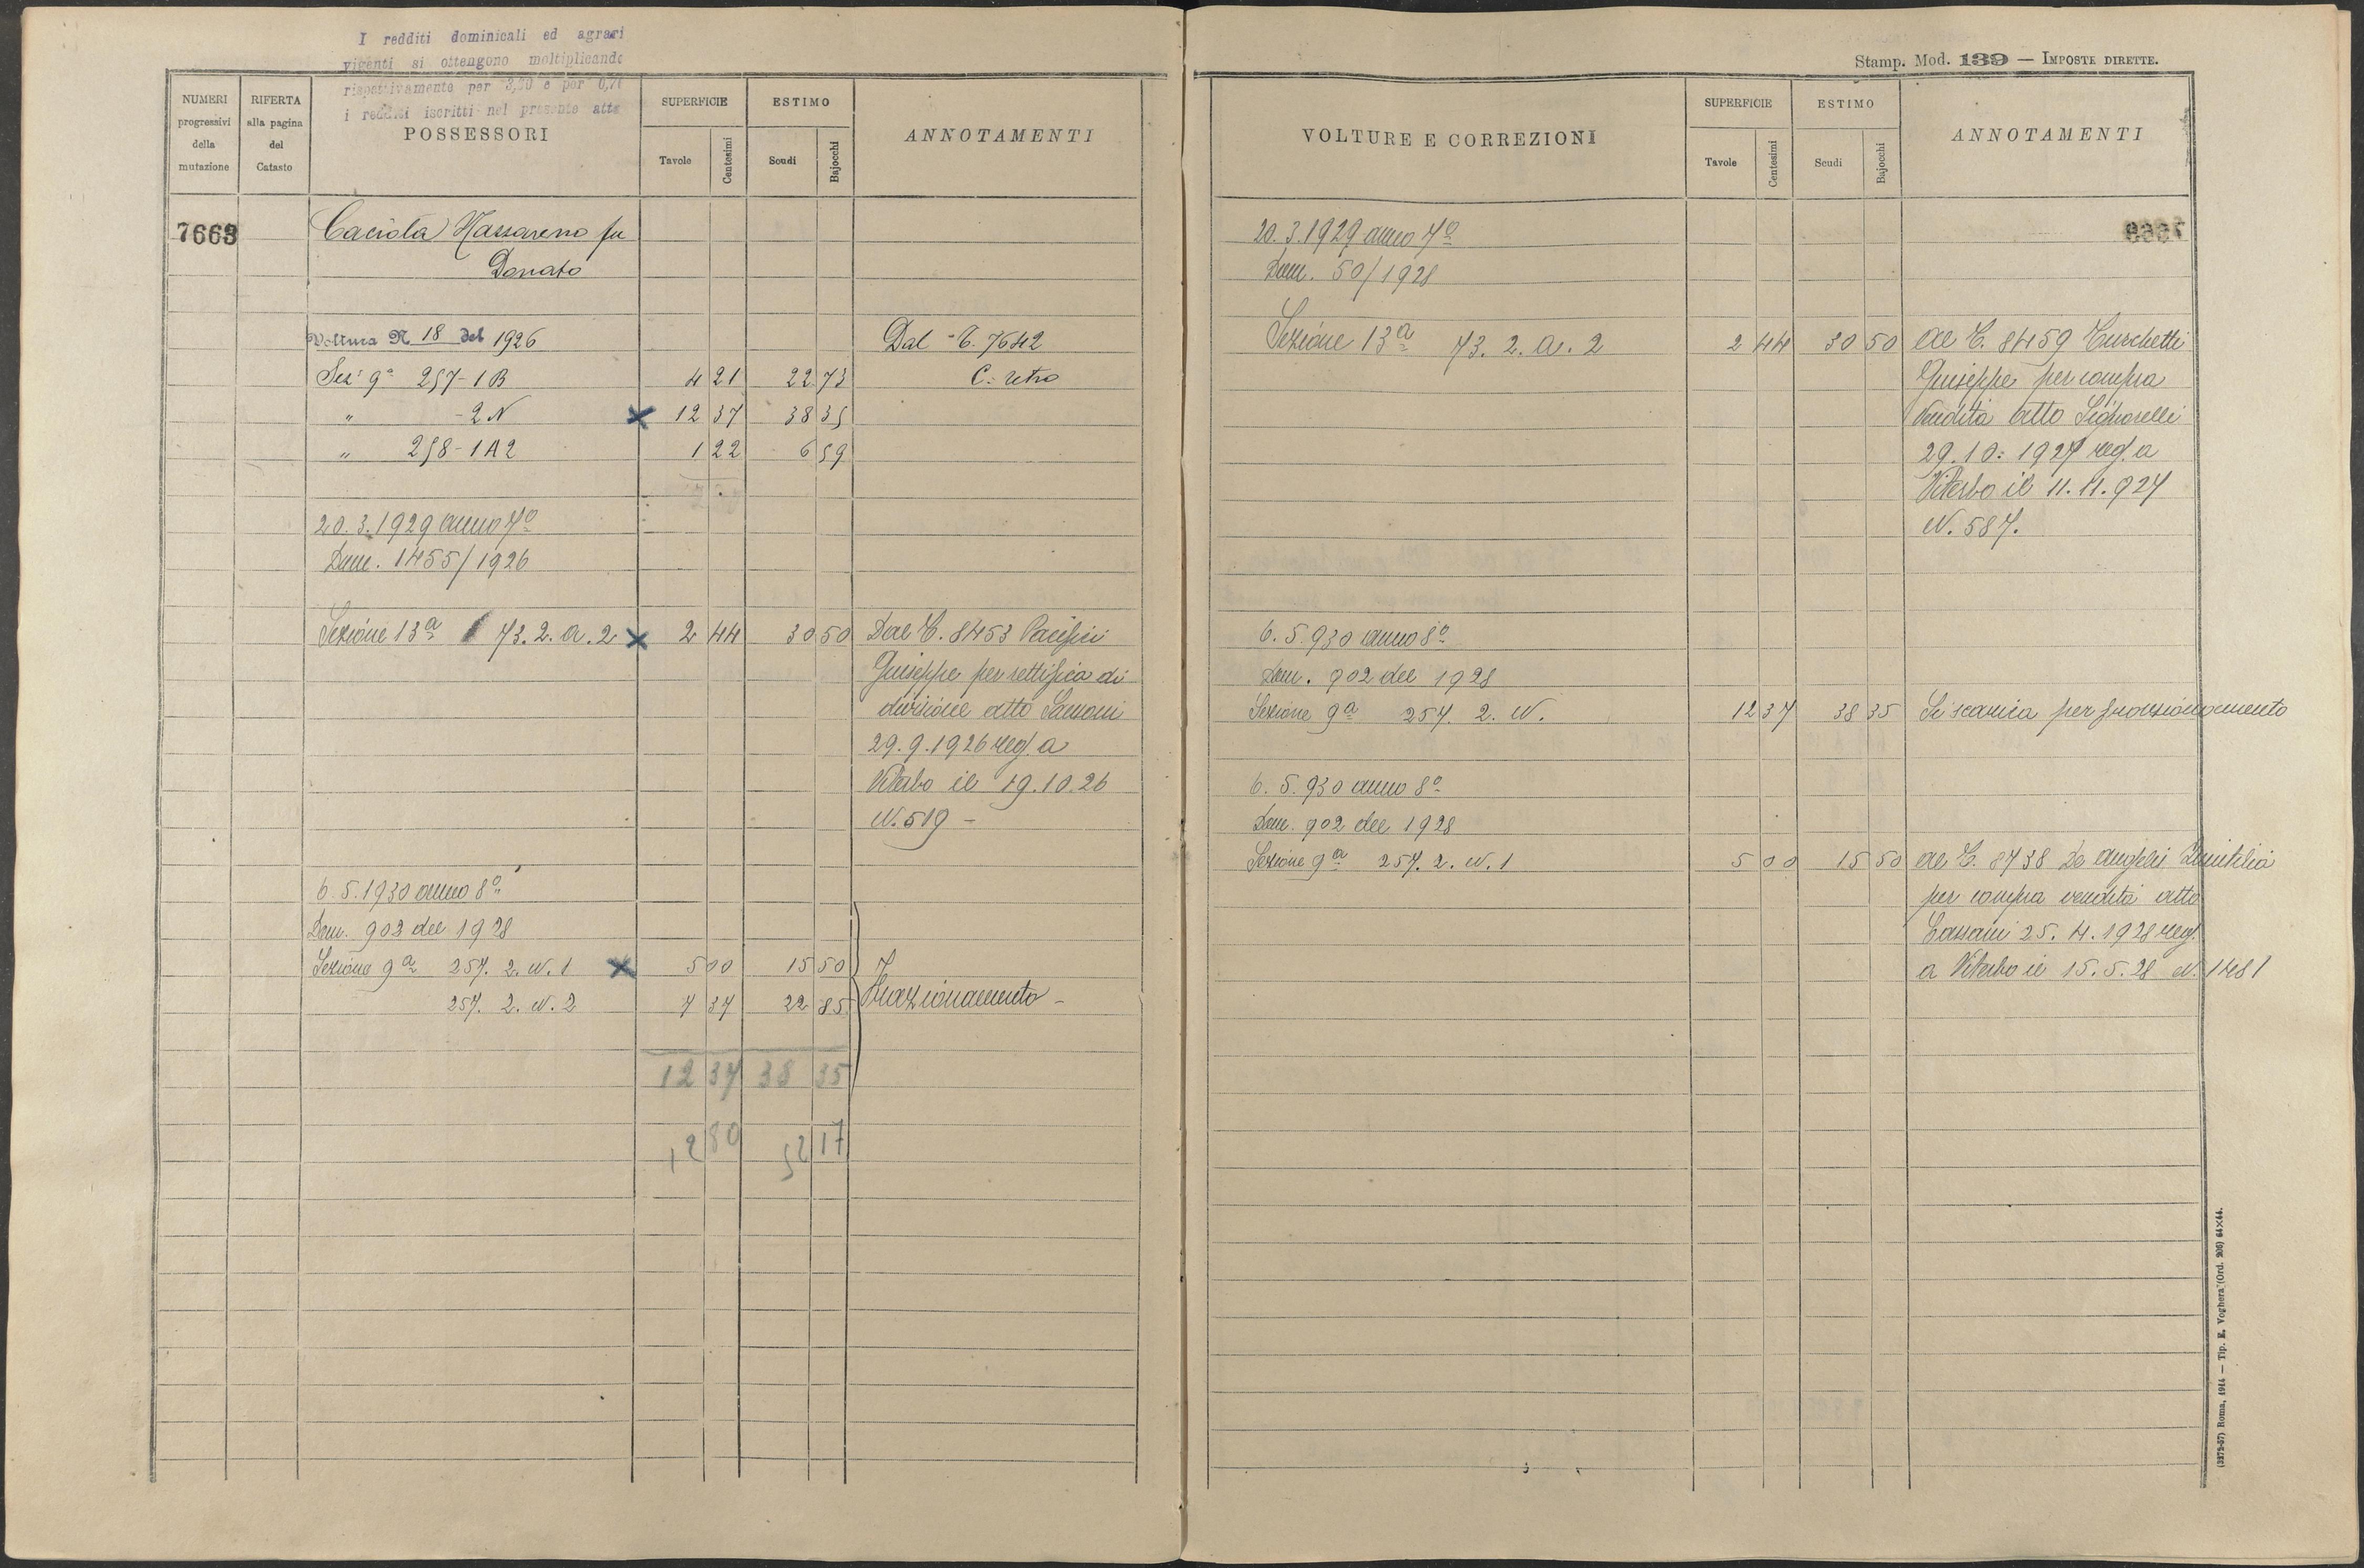 I redditi dominicali ed agrari
vigenti si ottengono moltiplicando
rispettivamente per 3,20 e per 0,70
i redditi iscritti nel presente atto
NUMERI progressivi della mutazione
RIFERTA alla pagina del Catasto
POSSESSORI
SUPERFICIE
Tavole Centesimi
ESTIMO
Scudi Bajocchi
ANNOTAMENTI
7663 Caciola Nazzareno fu
Donato
Voltura N 18 del 1926 Dal C. 7642
Sez: 9a 257-1B 4 21 22 73 C: retro
" -2N × 12 37 38 35
" 258-1A2 1 22 6 59
20.3.1929 anno 7º
Dom. 1455/1926
Sezione 13ª 73.2.a.2 × 2 44 30 50 Dal C. 8453 Pacifici
Giuseppe per rettifica di
divisione atto
29.9.1926 reg. a
Viterbo il 19.10.26
N. 519 -
6.5.1930 anno 8º
Dom. 902 del 1928
Sezione 9ª 257.2.N.1 × 5 00 15 50
257.2.N.2 7 37 22 85 Frazionamento -
12 37 38 35
12 80 52 17
Stamp. Mod. 139 — IMPOSTE DIRETTE.
VOLTURE E CORREZIONI
SUPERFICIE
Tavole Centesimi
ESTIMO
Scudi Bajocchi
ANNOTAMENTI
20.3.1929 anno 7º
Dom. 50/1928
Sezione 13ª 73.2.a.2 2 44 30 50 al C. 8459 Turchetti
Giuseppe per compra
vendita atto Signorelli
29.10.1927 reg. a
Viterbo il 11.11.927
N. 587.
6.5.930 anno 8º
Dom. 902 del 1928
Sezione 9ª 257.2.N. 12 37 38 35 Si scarica per frazionamento
6.5.930 anno 8º
Dom. 902 del 1928
Sezione 9ª 257.2.N.1 5 00 15 50 al C. 8738 De Angelis
per compra vendita atto
25.4.1928 reg.
a Viterbo il 15.5.28 N. 1481
(3272-57) Roma, 1914 — Tip. E. Voghera (Ord. 206) 64×44.